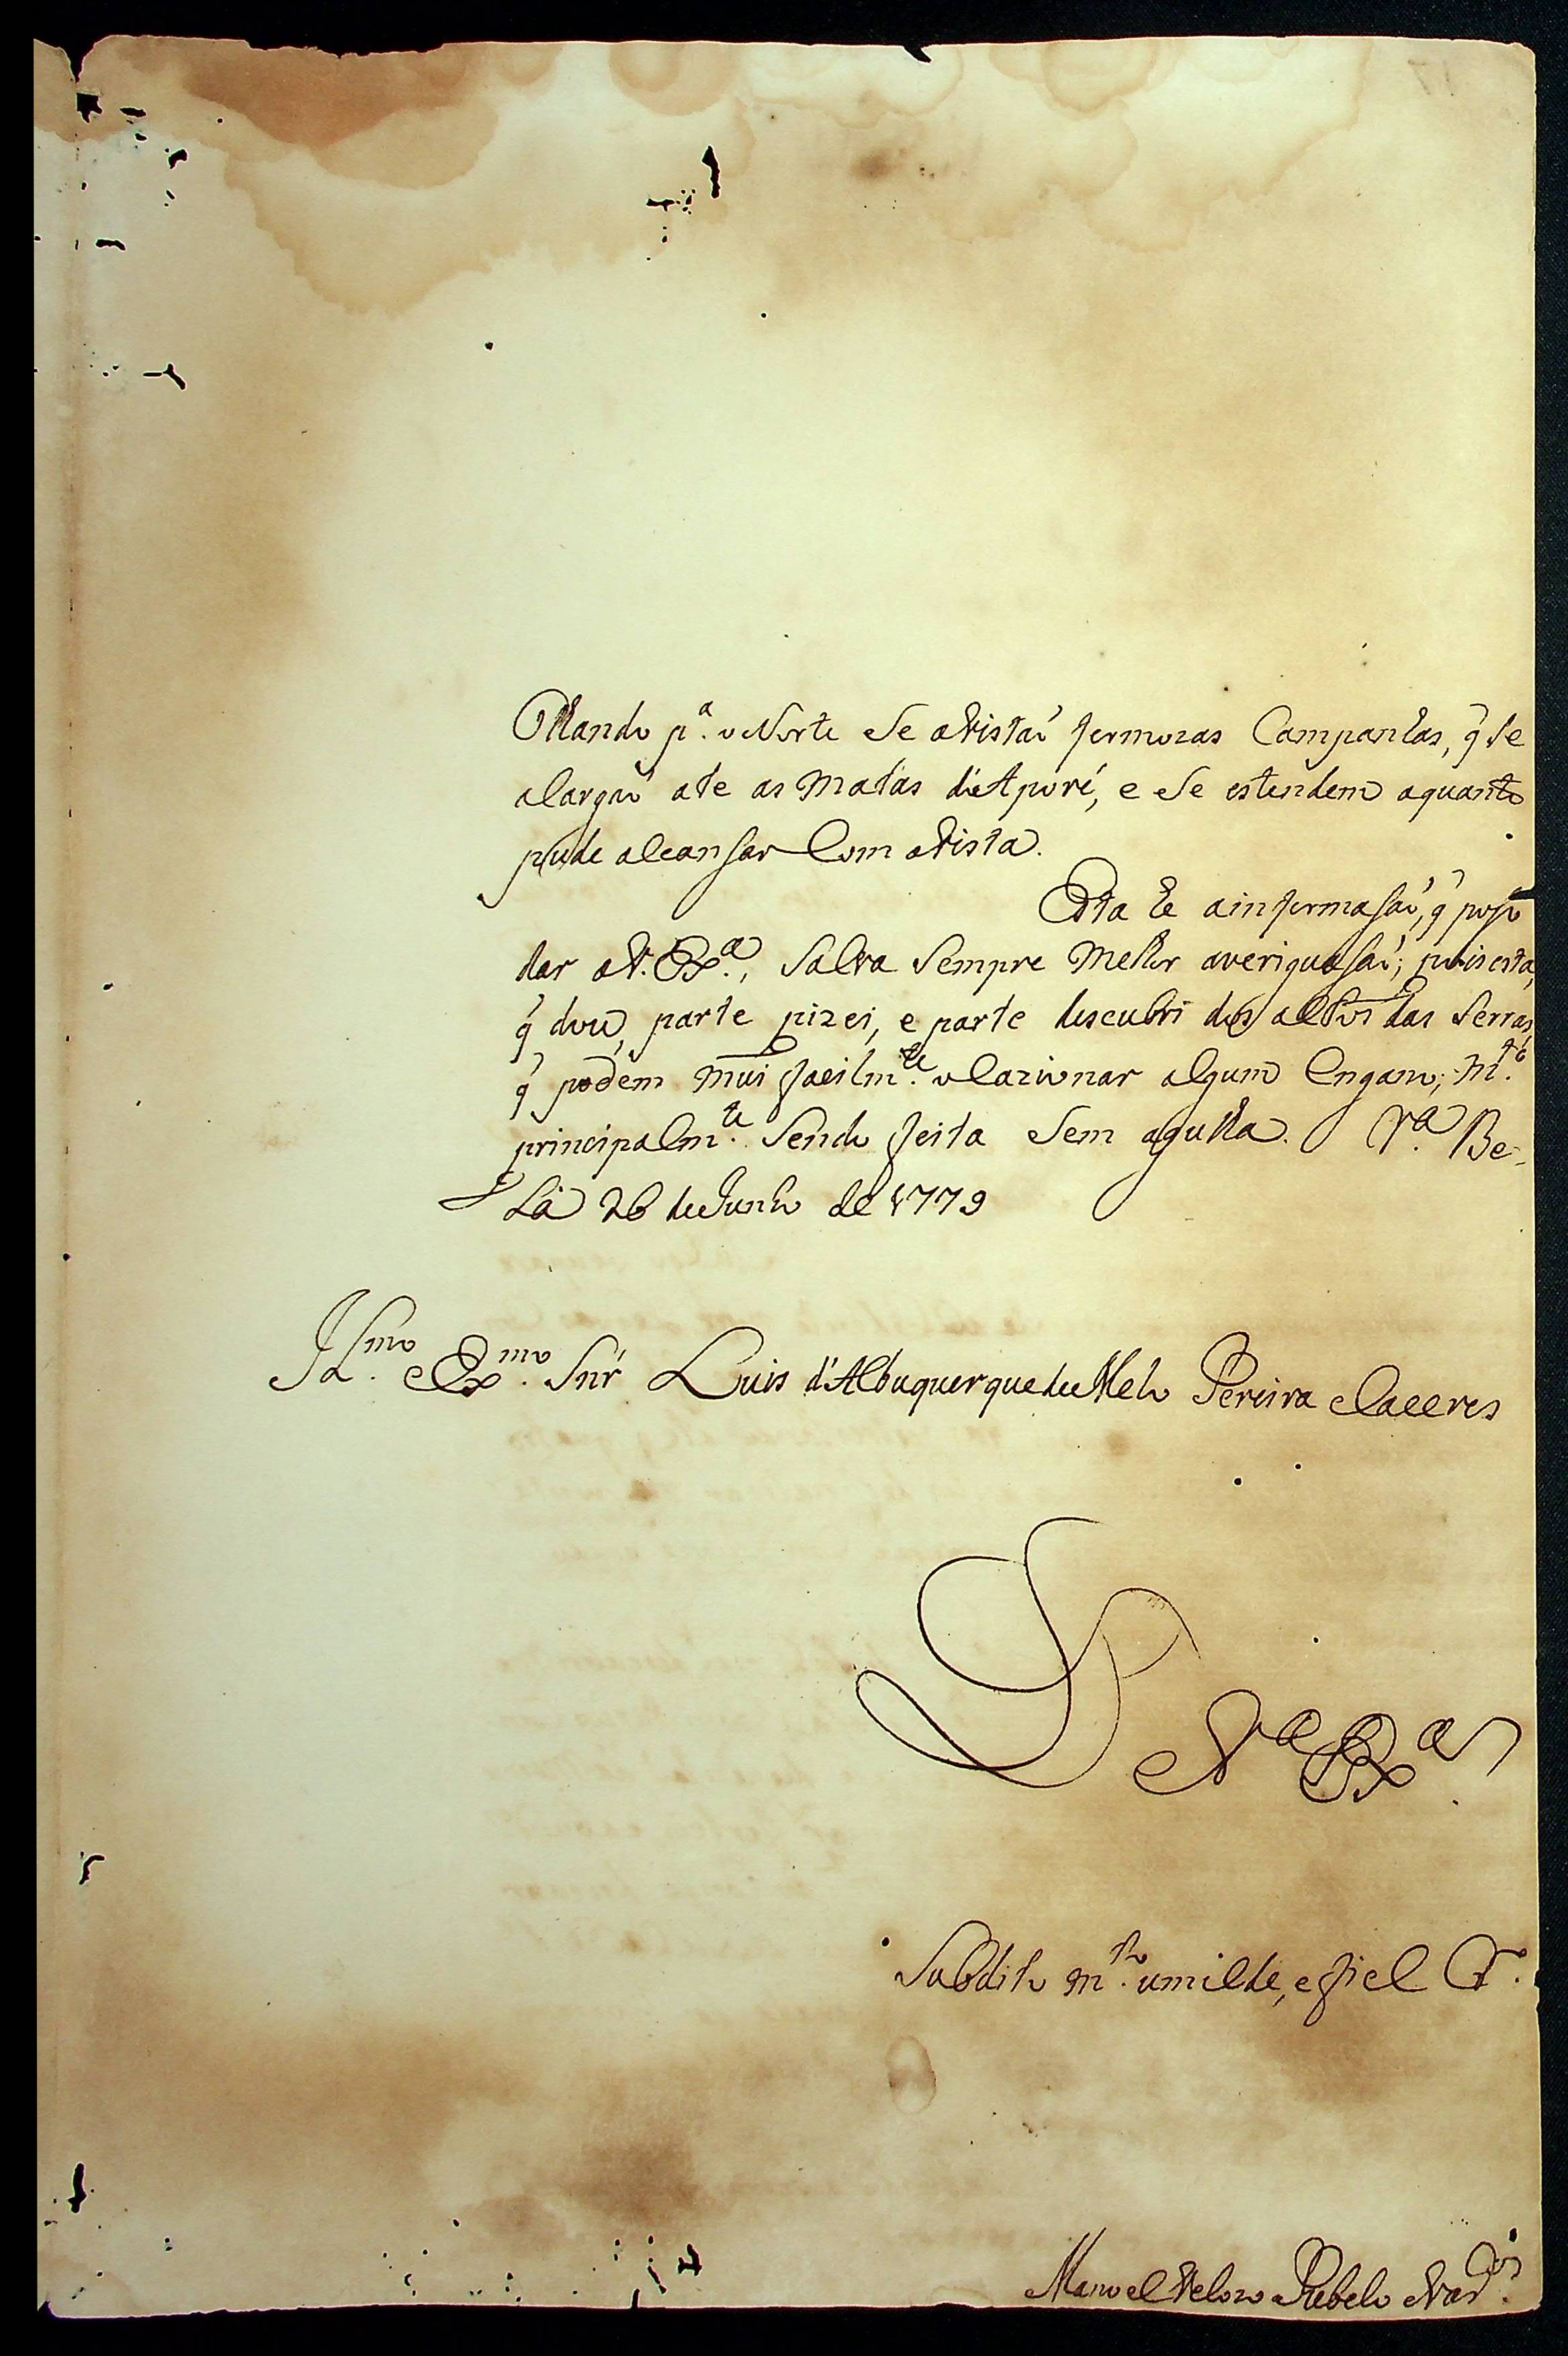 Olhando p.ª o Norte se avistaõ fermozas Campanhas, q̃ se
alargaõ ate as Matas d'Aporé, e se estendem aquanto
pude alcansar Com avista.
Esta he ainformasaõ, q̃ poso
dar aV. Ex.ª, Salva sempre Melhor averiguasaõ; pois esta,
q̃ dou, parte pizei, e parte descubri dos altos das Serras,
q̃ podem mui facilm.te olazionar algum Engano; m.to
principalm.te sendo feita sem agulha. V.ª Be-
la 26 de Junho de 1779
Il.mo e Ex.mo Snr̃ Luis d'Albuquerque de Melo Pereira eCaceres
De V.ª Ex.ª
Subdito m.to umilde, e fiel C.
Manoel Velozo Rebelo eVas.